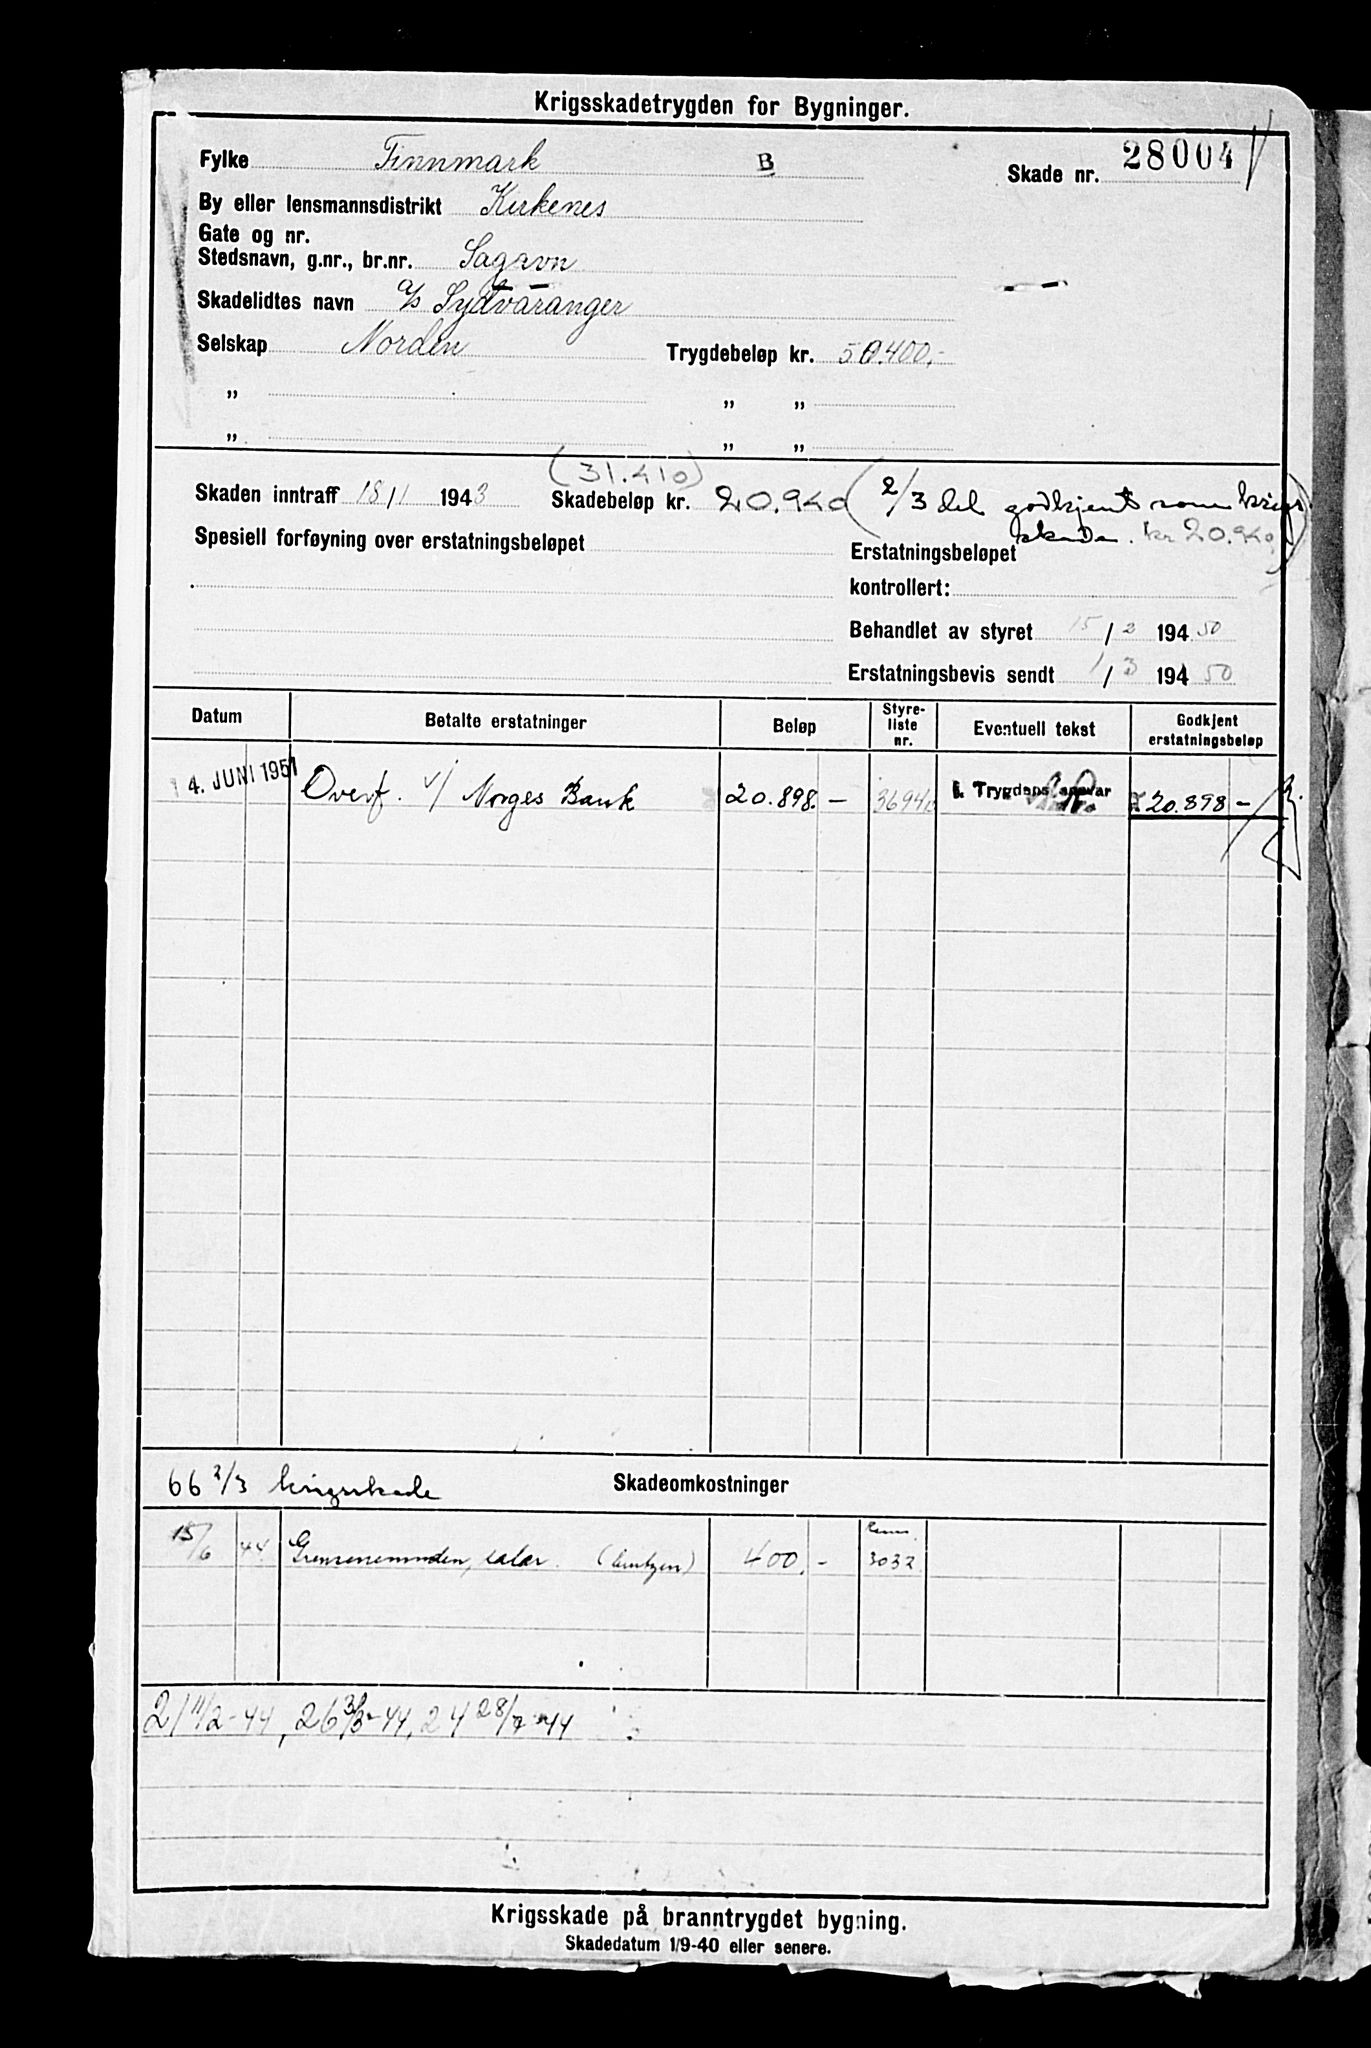 Krigsskadetrygden for Bygninger.
Fylke Finnmark B Skade nr. 28004
By eller lensmannsdistrikt Kirkenes
Gate og nr.
Stedsnavn, g.nr., br.nr. Sagavn
Skadelidtes navn a/s Sydvaranger
Selskap Norden Trygdebeløp kr. 50.400,-
" " "
" " "
(31.410)
Skaden inntraff 18/1 1943 Skadebeløp kr. 20.940 (2/3 del godkjent som krigs
skade. kr 20.940)
Spesiell forføyning over erstatningsbeløpet
Erstatningsbeløpet
kontrollert:
Behandlet av styret 15/2 194 50
Erstatningsbevis sendt 1/3 194 50
Datum Betalte erstatninger Beløp Styre-liste nr. Eventuell tekst Godkjent erstatningsbeløp
4. JUNI 1951 Overf. v/ Norges Bank 20.898.- 3694 Trygdens ansvar 20.898 -
66 2/3 krigsskade Skadeomkostninger
15/6 44 400,- 3032
21 11/2-44, 26 -44, 24 28/7-44
Krigsskade på branntrygdet bygning.
Skadedatum 1/9-40 eller senere.